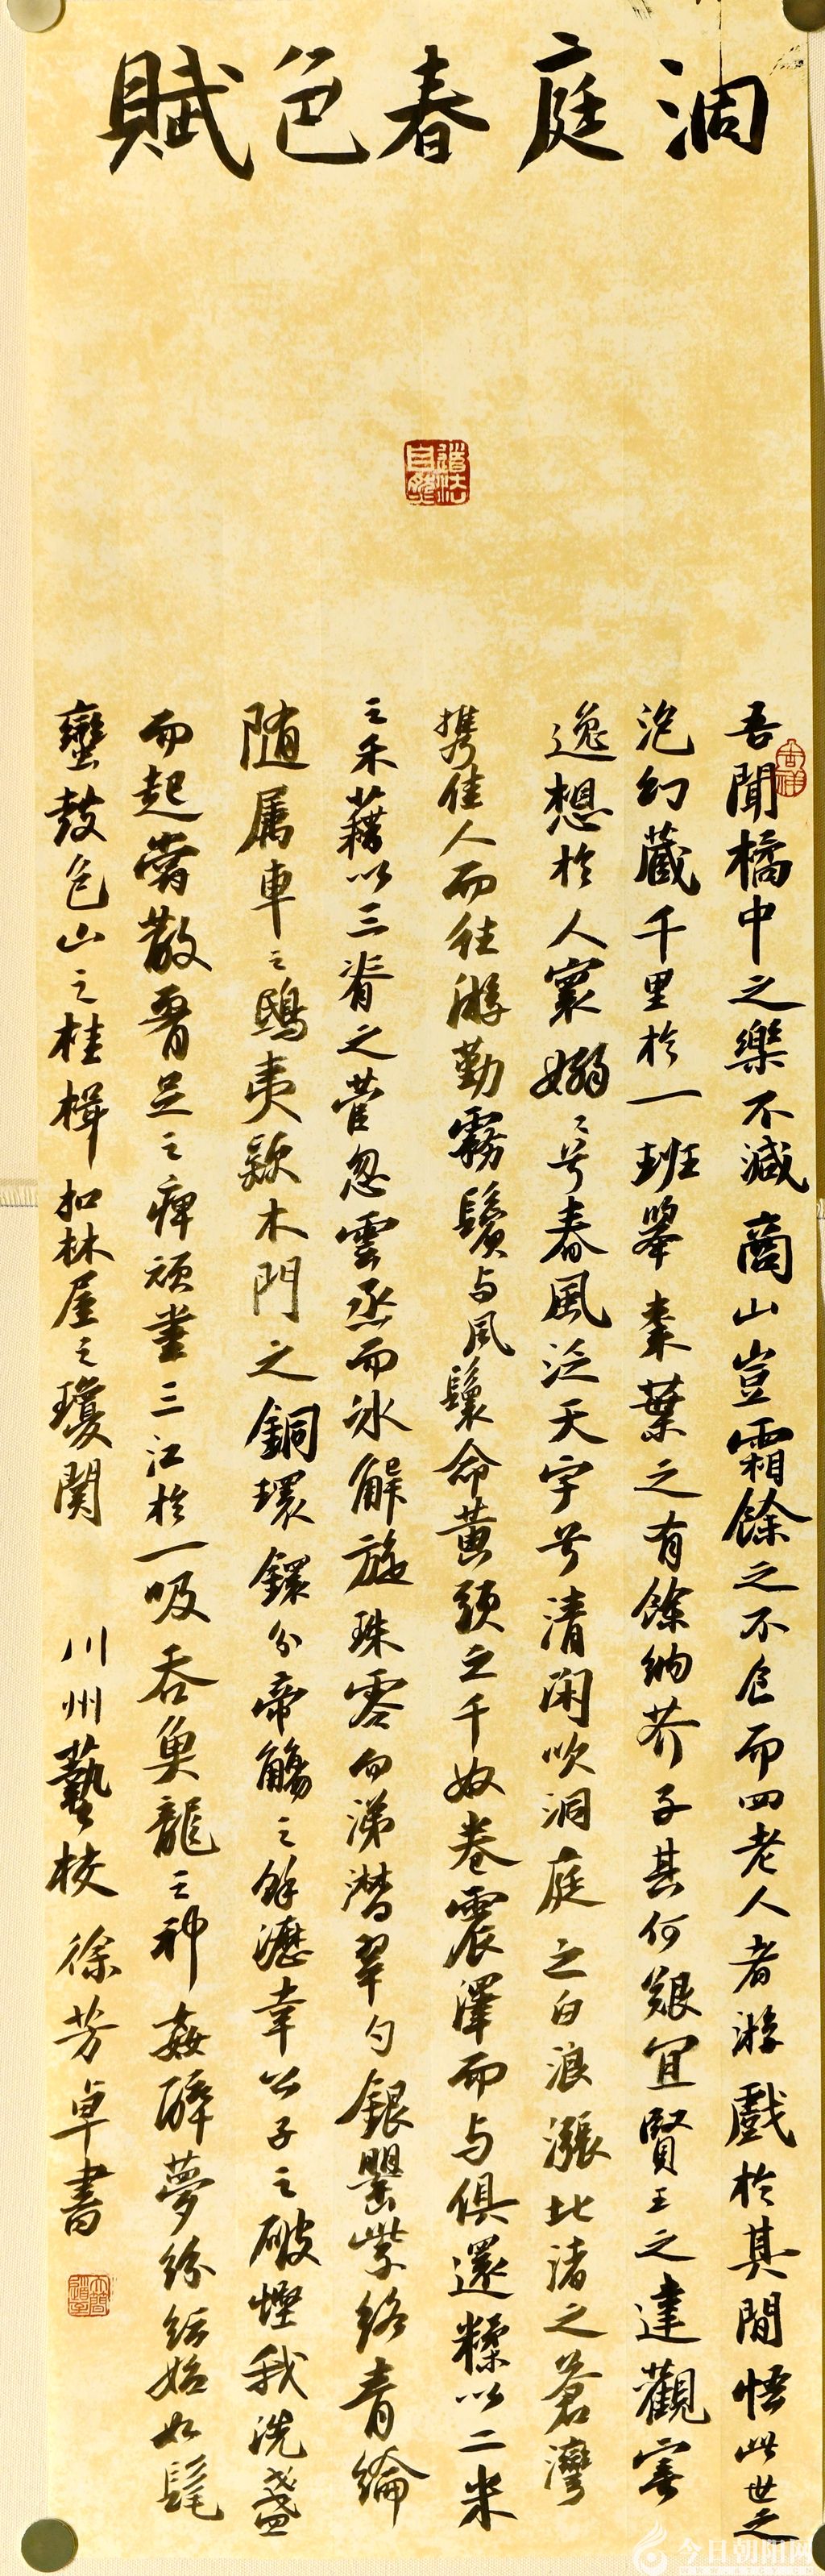 洞庭春色賦
道法自然
吉祥
吾聞橘中之樂不減商山豈霜餘之不食而四老人者游戲於其間悟此世之
泡幻藏千里於一班舉棗葉之有餘納芥子其何艱宜賢王之達觀寄
逸想於人寰嫋〻兮春風泛天宇兮清閑吹洞庭之白浪漲北渚之蒼灣
携佳人而往游勤霧鬢與風鬟命黃頭之千奴卷震澤而与俱還糅以二米
之禾藉以三脊之菅忽雲烝而冰解旋珠零而涕潸翠勺銀罌紫絡青綸
随属車之鴟夷款木門之銅環鐶分帝觴之餘瀝幸公子之破慳我洗盞
而起嘗散腎足之痺頑盡三江於一吸吞魚龍之神姦醉夢紛紜始如髦
蠻鼓包山之桂楫扣林屋之瓊関
川州藝校 徐芳卓書
今日朝阳网